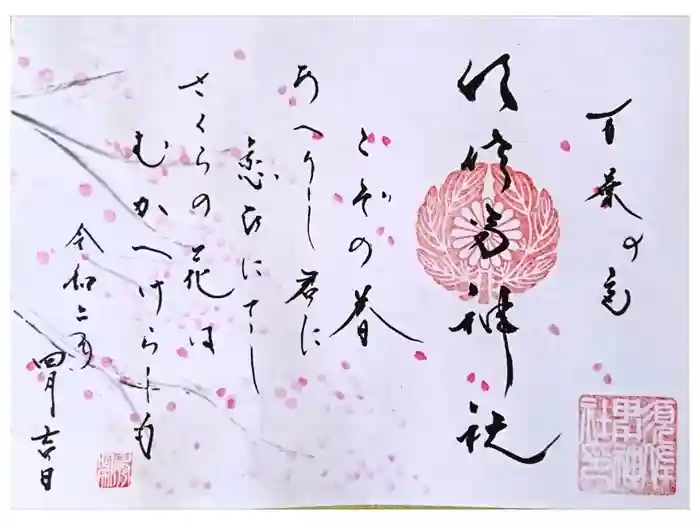 万葉の
須佐男神社
こぞの春
あへりし君に
恋ひにてし
さくらの花は
むかへけらしも
令和二年
四月吉日
須佐
男神
社印